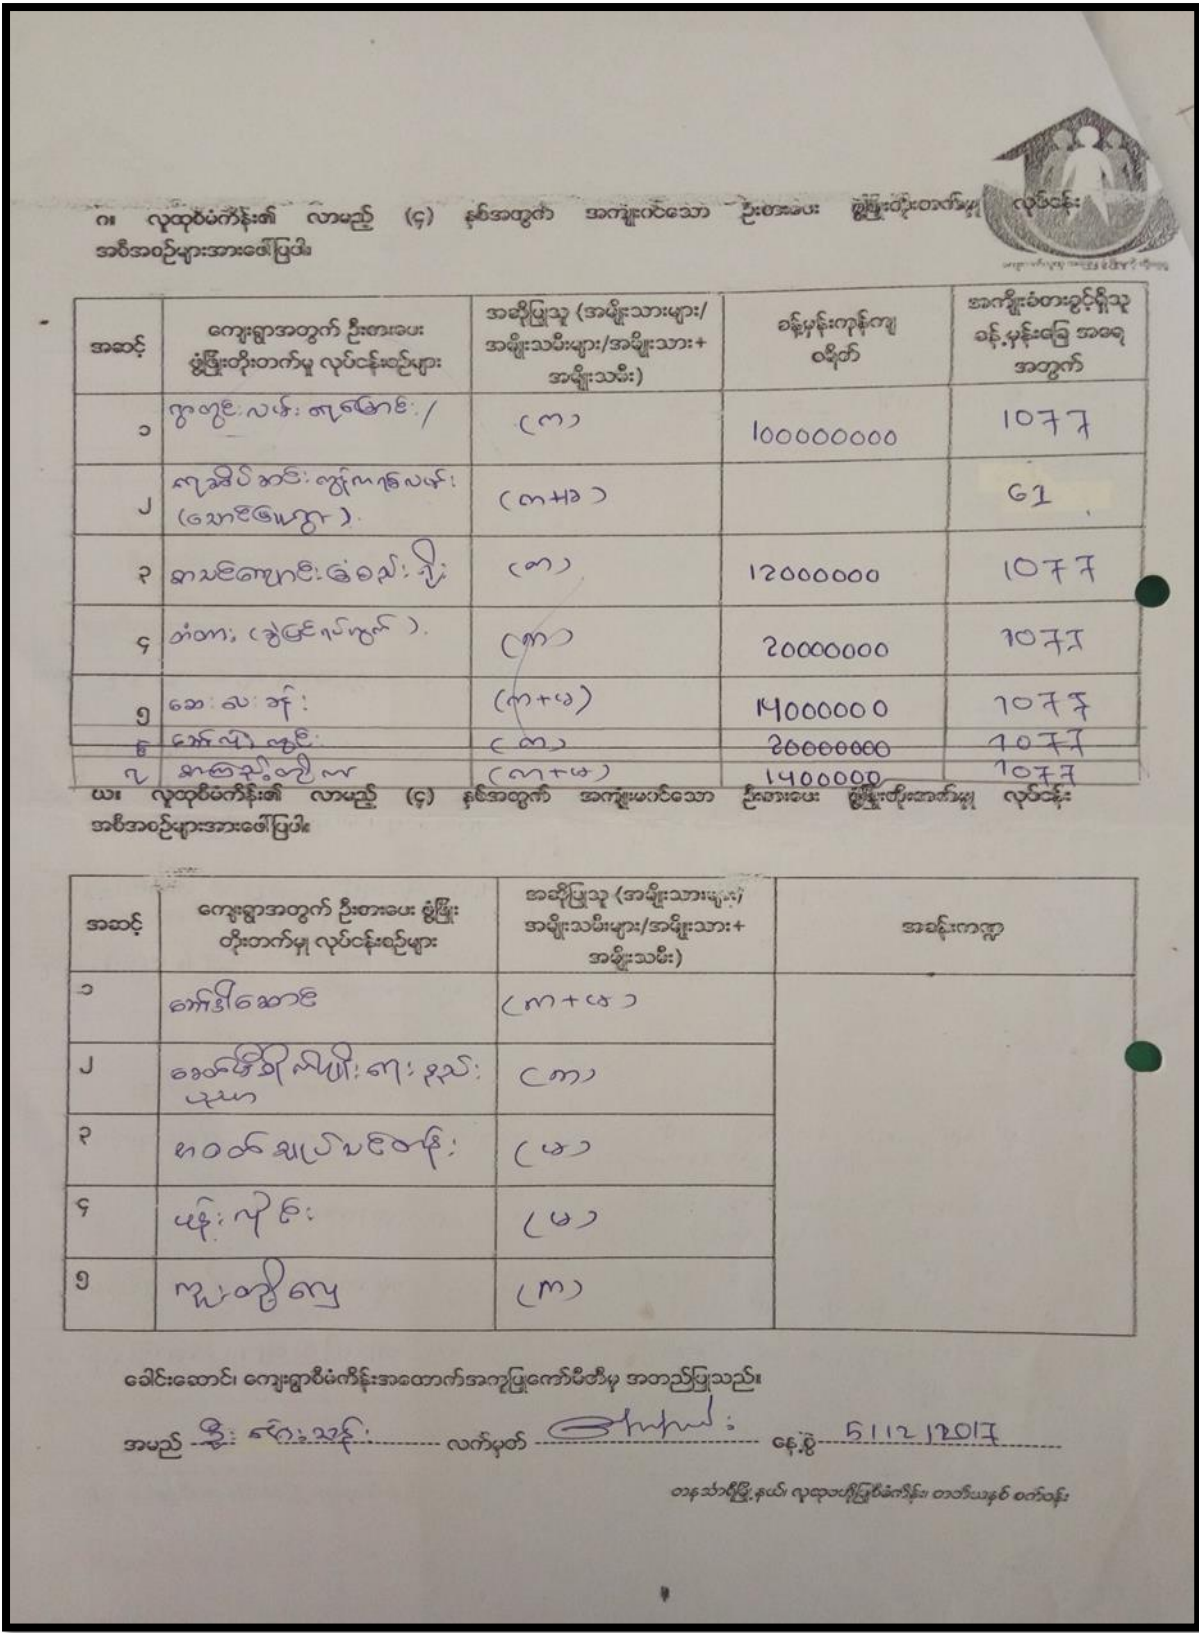 ဂ။ လူထုစီမံကိန်း၏ လာမည့် (၄) နှစ်အတွက် အကျုံးဝင်သော ဦးစားပေး ဖွံ့ဖြိုးတိုးတက်မှု လုပ်ငန်း
အစီအစဉ်များအားဖေါ်ပြပါ။
အဆင့်
ကျေးရွာအတွက် ဦးစားပေး
ဖွံ့ဖြိုးတိုးတက်မှု လုပ်ငန်းစဉ်များ
အဆိုပြုသူ (အမျိုးသားများ/
အမျိုးသမီးများ/အမျိုးသား+
အမျိုးသမီး)
ခန့်မှန်းကုန်ကျ
စရိတ်
အကျိုးခံစားခွင့်ရှိသူ
ခန့်မှန်းခြေ အရေ
အတွက်
၁
ရွာတွင်းလမ်း ရေမြောင်း /
(က)
100000000
1077
၂
(က+မ)
61
၃
စာသင်ကျောင်းခြံစည်းရိုး
(က)
12000000
1077
၄
တံတား
(က)
20000000
1077
၅
ဆေးပေးခန်း
(က+မ)
14000000
1077
၆
(က)
20000000
1077
၇
စာကြည့်တိုက်
(က+မ)
1400000
1077
ဃ။ လူထုစီမံကိန်း၏ လာမည့် (၄) နှစ်အတွက် အကျုံးမဝင်သော ဦးစားပေး ဖွံ့ဖြိုးတိုးတက်မှု လုပ်ငန်း
အစီအစဉ်များအားဖေါ်ပြပါ။
အဆင့်
ကျေးရွာအတွက် ဦးစားပေး ဖွံ့ဖြိုး
တိုးတက်မှု လုပ်ငန်းစဉ်များ
အဆိုပြုသူ (အမျိုးသားများ/
အမျိုးသမီးများ/အမျိုးသား+
အမျိုးသမီး)
အခန်းကဏ္ဍ
၁
(က+မ)
၂
ခေတ်မီစိုက်ပျိုးရေးနည်း
ပညာ
(က)
၃
စက်ချုပ်သင်တန်း
(မ)
၄
ပန်းလှိုင်း
(မ)
၅
ကူးတို့လှေ
(က)
ခေါင်းဆောင်၊ ကျေးရွာစီမံကိန်းအထောက်အကူပြုကော်မီတီမှ အတည်ပြုသည်။
အမည် ဦး လက်မှတ် နေ့စွဲ 5/12/2017
တနင်္သာရီမြို့နယ်၊ လူထုဗဟိုပြုစီမံကိန်း၊ တတိယနှစ် စက်ဝန်း